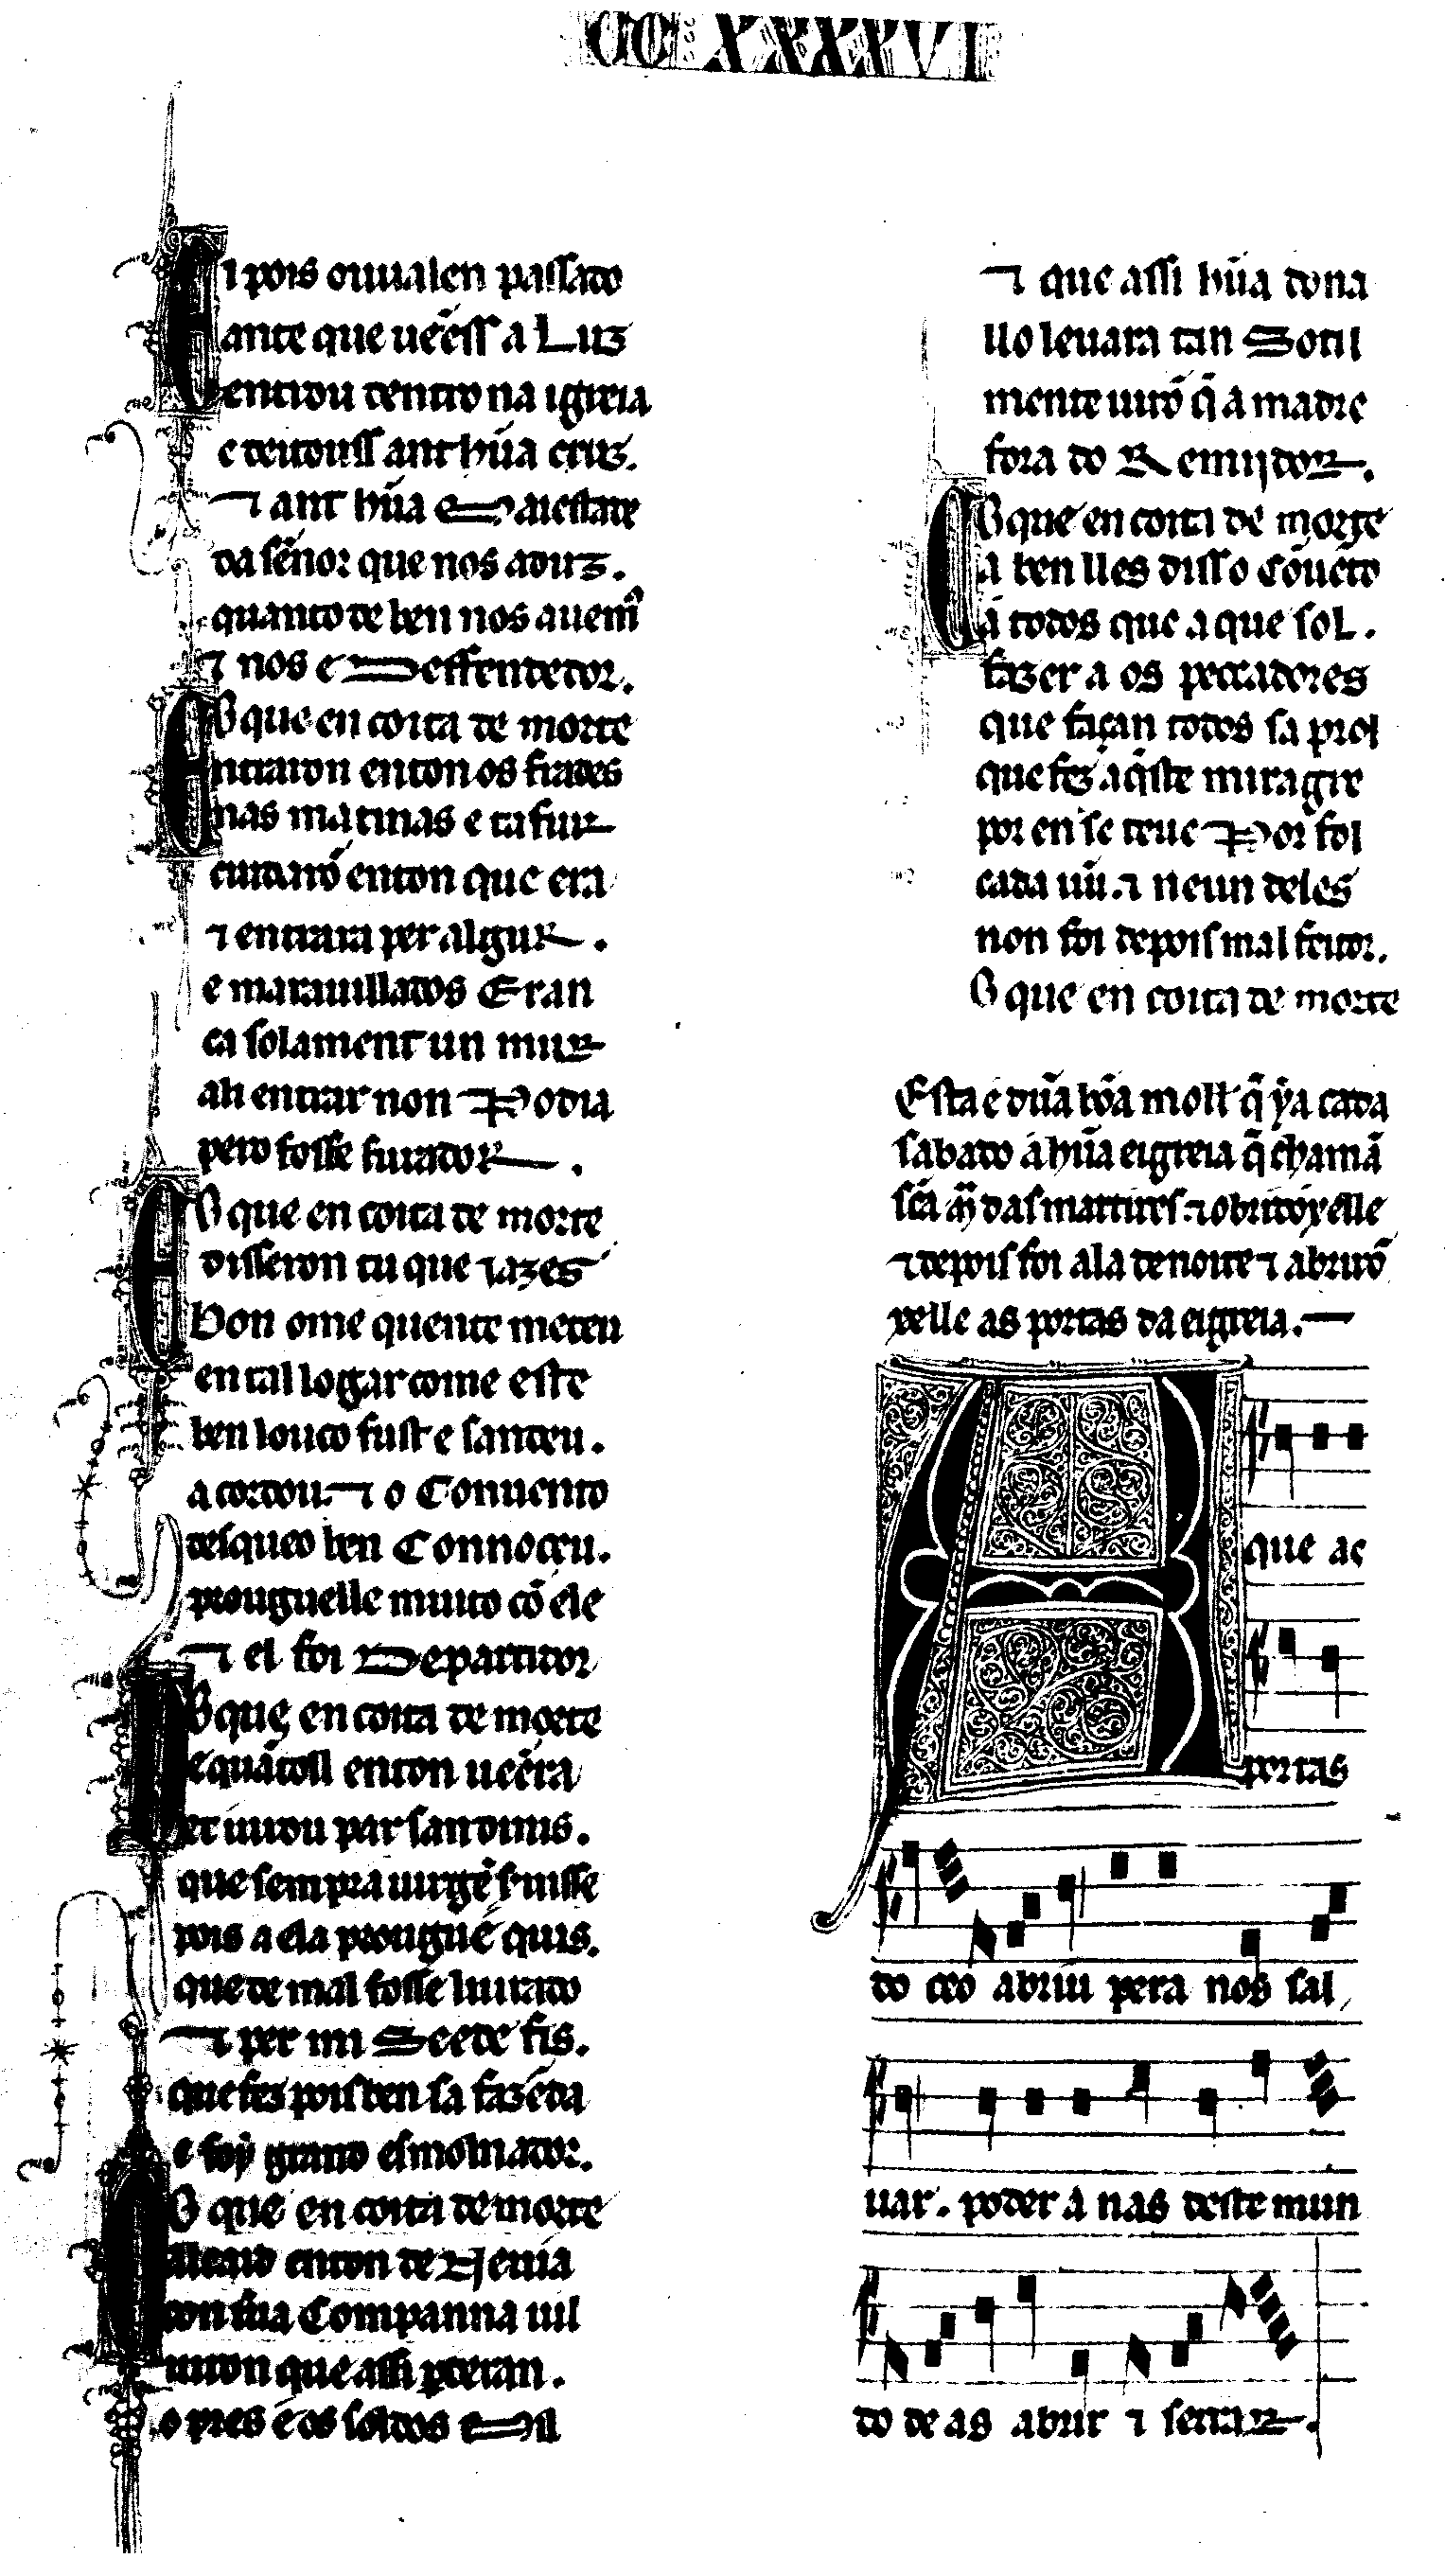 CC XXXXVI
E pois ouu alen passado
ante que uẽess a Luz
entrou dentro na igreia
e deitouss ant hũa cruz.
⁊ ant hũa Maiestade
da sẽnor que nos aduz.
quanto de ben nos auemꝯ
⁊ nos e Deffendedor.
O que en coita de morte
Entraron enton os frades
nas matinas e tafur
cuidarõ enton que era
⁊ entrara per algur.
e marauillados Eran
ca solament un mur
ali entrar non Podia
pero fosse furador.
O que en coita de morte
E disseron tu que iazes
Bon ome quente meteu
en tal logar come este
ben louco fust e sandeu.
acordou. ⁊ o Conuento
desqueo ben Connoçeu.
prouguelle muito cõ ele
⁊ el foi Departidor
O que en coita de morte
De quãtoll enton uẽera
et iurou par san Dinis.
que sempr a uirgẽ siruisse
pois a ela prouguẽ quis.
que de mal fosse liurado
⁊ per mi Seede fis.
que fez pois ben sa fazẽda
e foy grand esmolnador.
O que en coita de morte
Alleuid enton de Neuia
con sua Companna uil
uiron que assi perderan.
o pres e os soldos Mil
⁊ que assi hũa dona
llo leuara tan Sotil
mente uirõ q̃ a madre
fora do Remijdor.
O que en coita de morte
Ca ben lles diss o cõuẽto
a todos que aque sol.
fazer a os peccadores
que façan todos sa prol
que fez aq̃ste miragre
por en se teue Por fol
cada uũ. ⁊ neun deles
non foi depois malfeitor.
O que en coita de morte
Esta é dũa bõa moll' q̃ ýa cada
sabado á hũa eigreia q̃ chamã
sc̃a m̃ das martires. ⁊ obridóxelle
⁊ depois foi ala de noite ⁊ abrirõ
xelle as portas da eigreia.
A que as
portas
do ceo abriu pera nos sal
uar. poder á nas deste mun
do de as abrir ⁊ serrar.